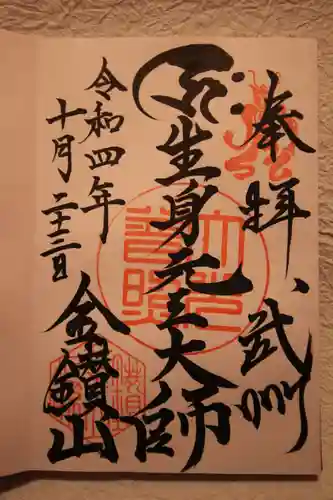 奉拝、武州
生身元三大師
令和四年
十月二十三日
金鑚山
大光
普照